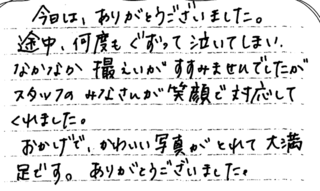 今日は、ありがとうございました。
途中、何度もぐずって泣いてしまい、
なかなか撮えいがすすみませんでしたが
スタッフのみなさんが笑顔で対応して
くれました。
おかげで、かわいい写真がとれて大満
足です。ありがとうございました。